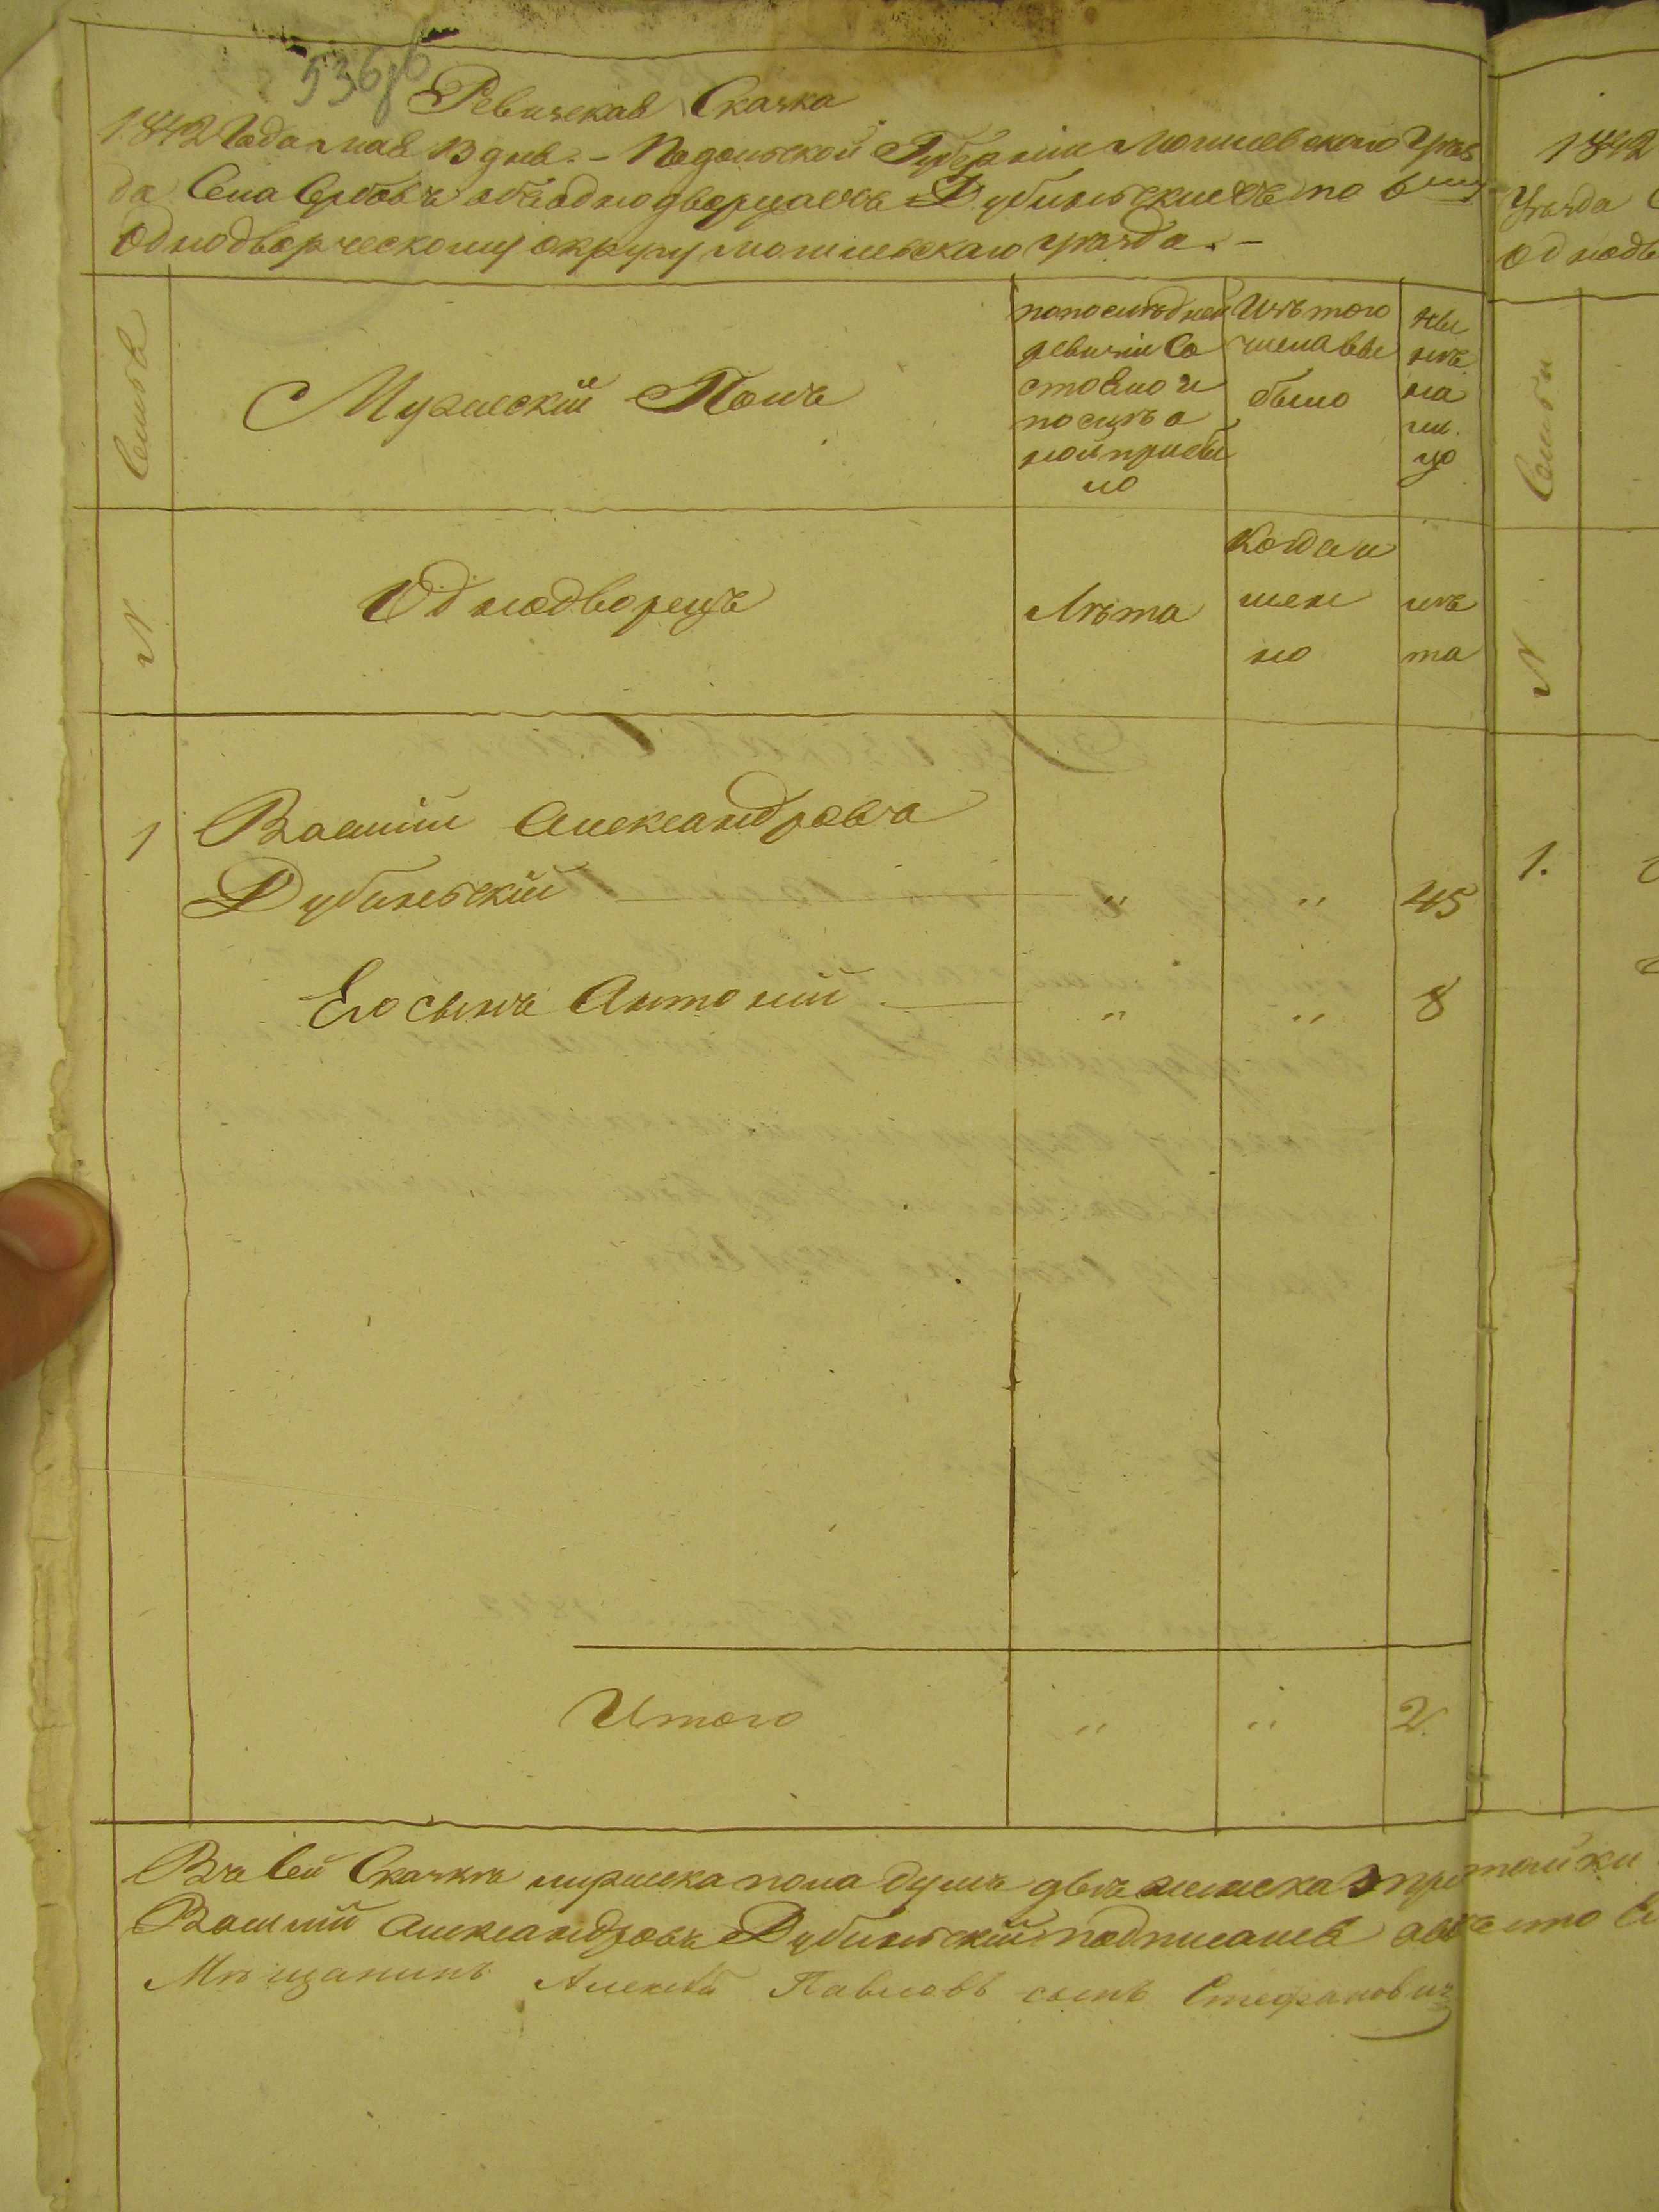 536
Ревизская Сказка
1842 Года мая 13 дня. – Подольской Губерніи Могилевского Уѣз
да Села Сербовъ объ однодворцахъ Дубинскихъ по 6му
Однодворческому округу могилевскаго уѣзда. –
Семья
Мужескій Полъ
по послѣдней
ревизіи Со
стояло и
послѣ о
ной прибы
ло
Изъ того
числа вы
было
Ны
нѣ
на
ли
цо
N
Однодворецъ
Лѣта
Когда и
имен
но
лѣ
та
1 Василій Александровъ
Дубинскій „ „ 45
Его сынъ Антоній „ „ 8
Итого „ „ 2.
Въ Сей Сказкѣ мужеска пола душъ двѣ женска 3
Василій Александровъ Дубинскій подписался а вмѣсто
Мѣщанинъ Алексѣй Павловъ сынъ Стефановичъ
1842
Уѣзда
Однодв
Семья
N
1.